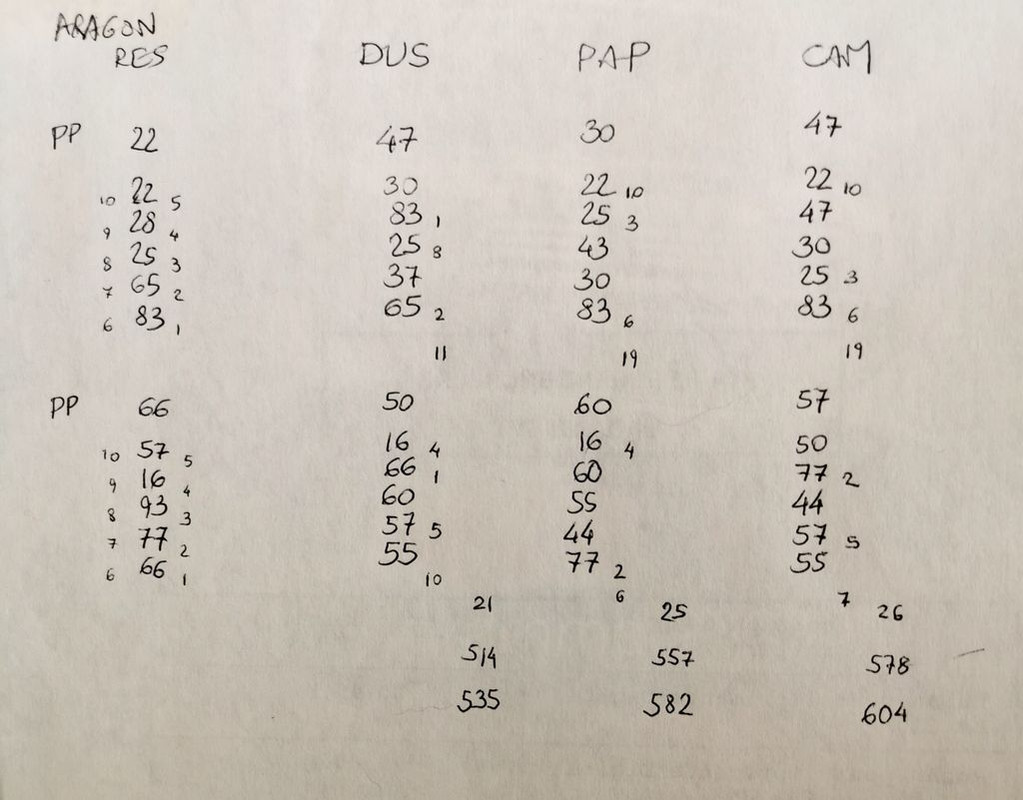 ARAGON
RES DUS PAP CAM
PP 22 47 30 47
10 22 5 30 22 10 22 10
9 28 4 83 1 25 3 47
8 25 3 25 8 43 30
7 65 2 37 30 25 3
6 83 1 65 2 83 6 83 6
11 19 19
PP 66 50 60 57
10 57 5 16 4 16 4 50
9 16 4 66 1 60 77 2
8 93 3 60 55 44
7 77 2 57 5 44 57 5
6 66 1 55 77 2 55
10 6 7
21 25 26
514 557 578
535 582 604